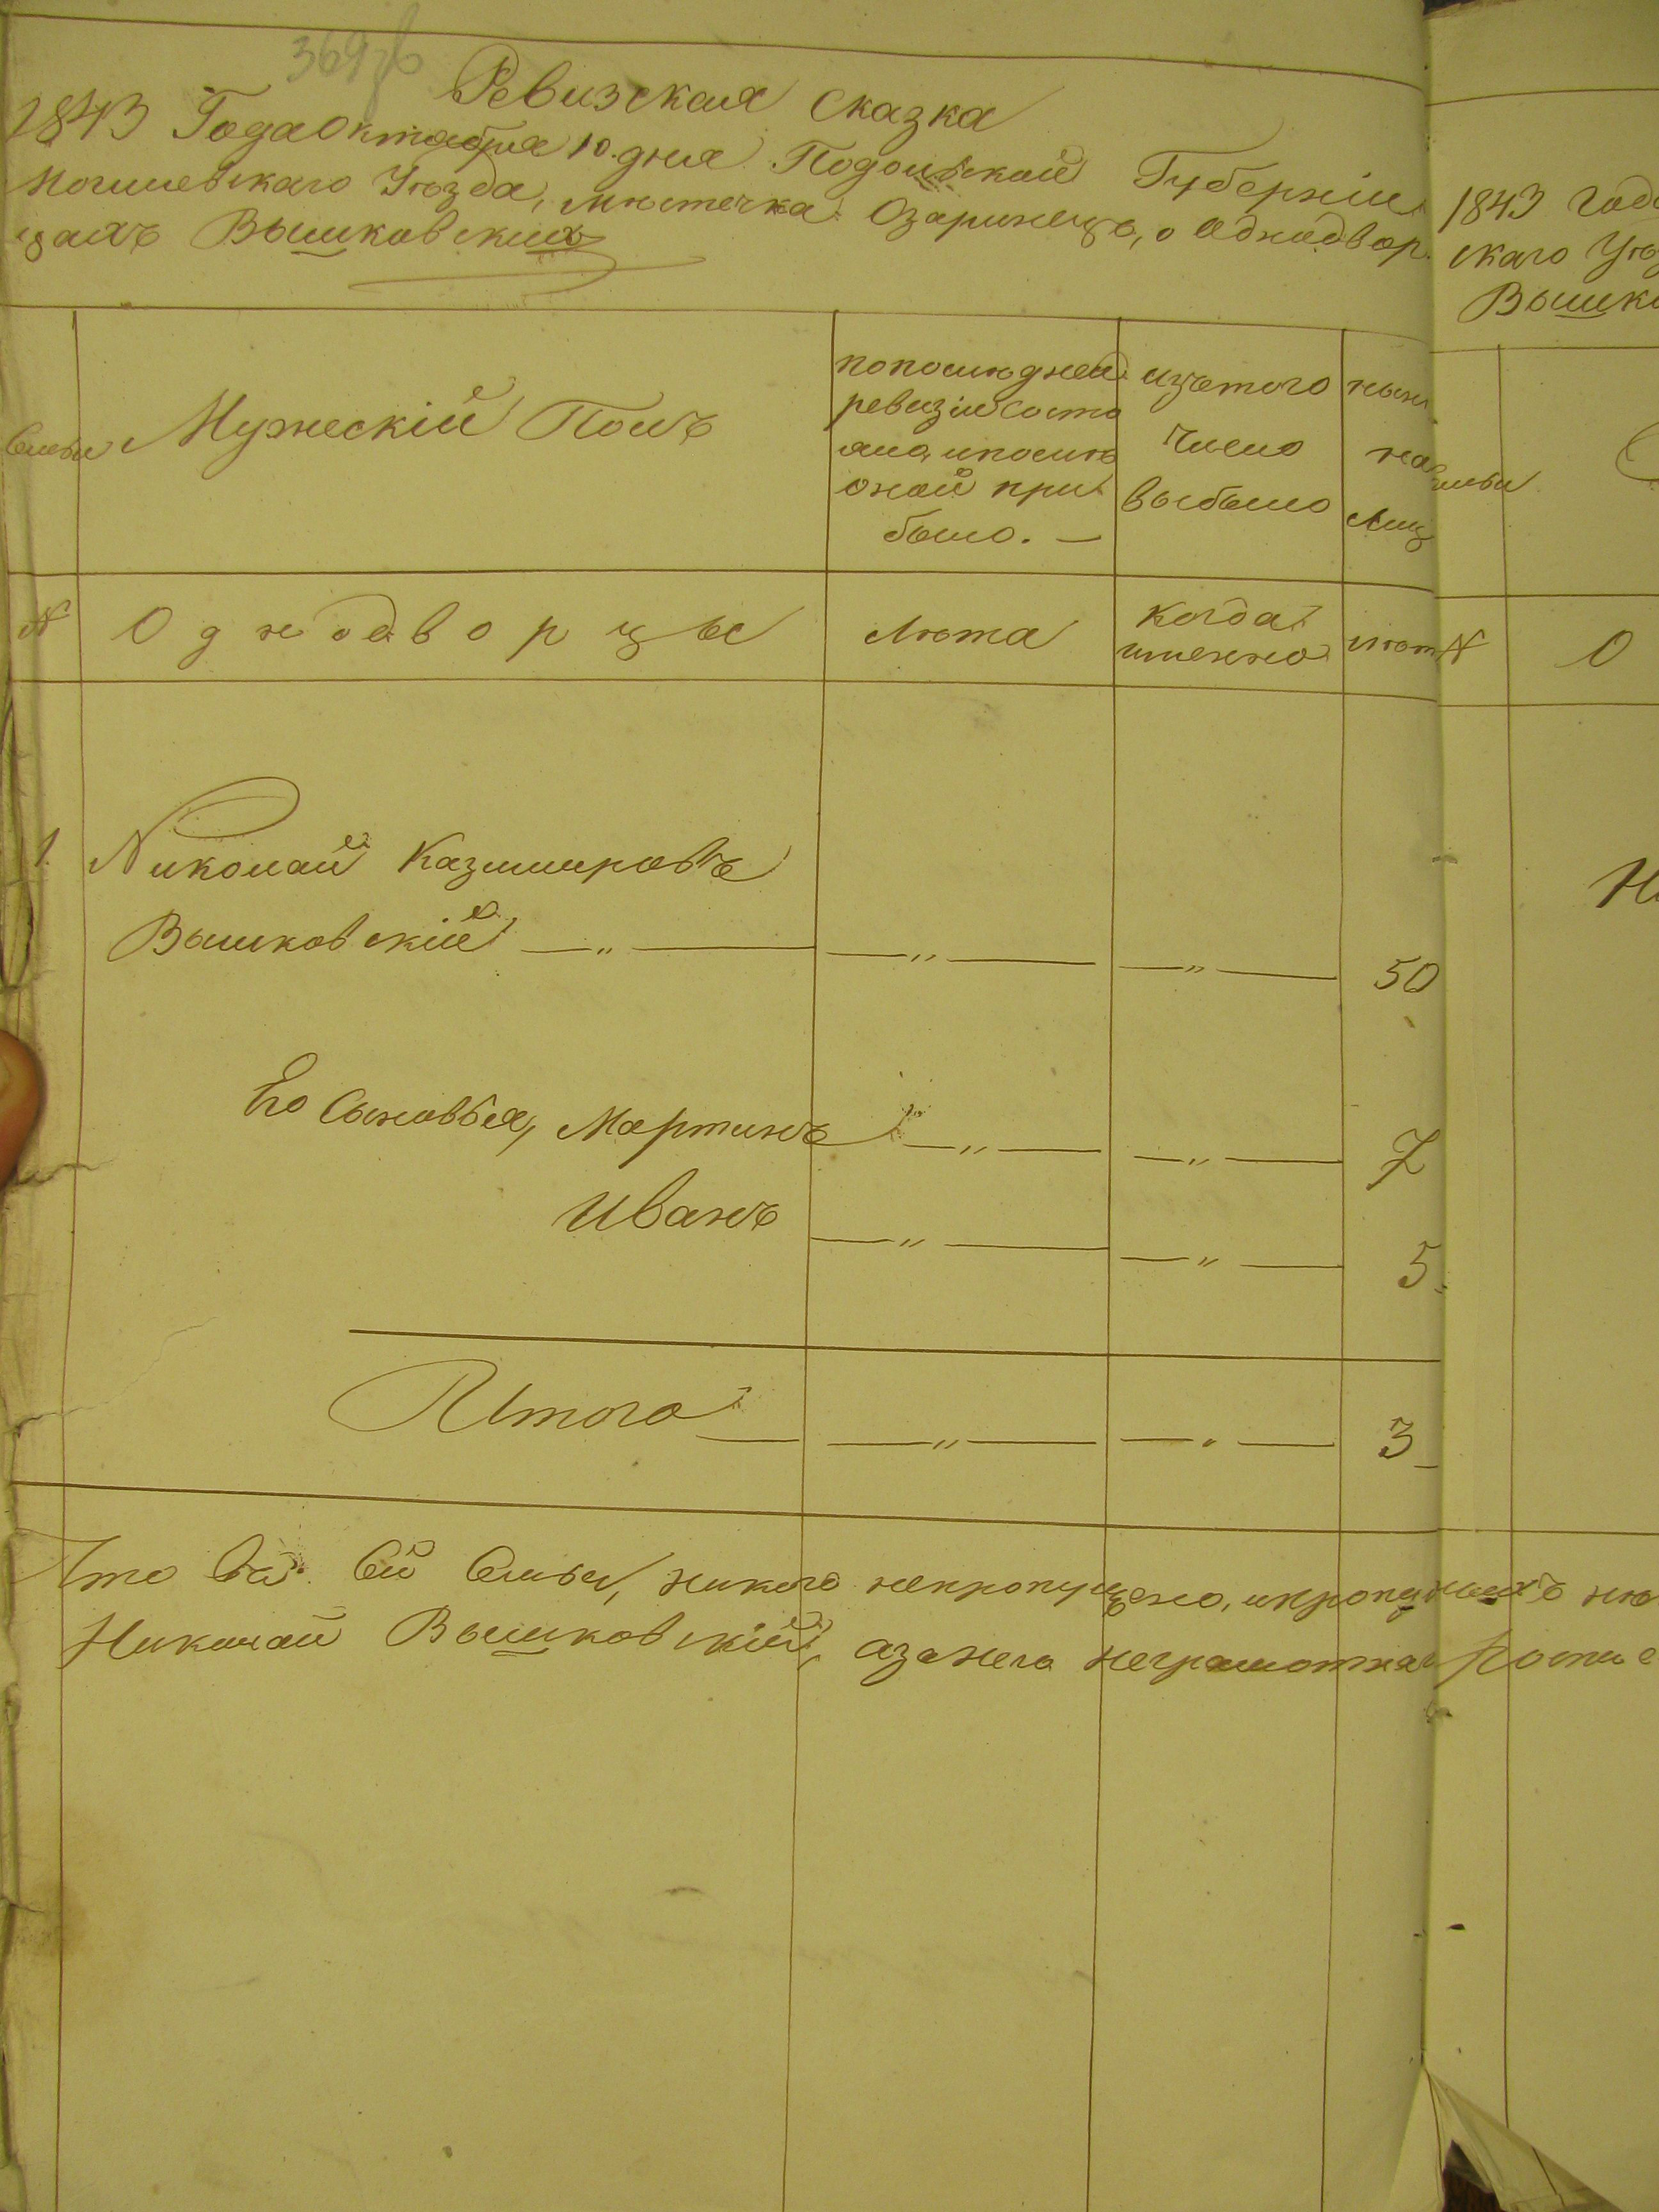 Ревизская Сказка
1843 Года Октября 10. дня Подольской Губерніи
Могилевскаго Уѣзда, мѣстечка Озаринецъ, о Однодвор
цахъ Вышковскихъ
Семьи
Мужескій Полъ
по последней
ревизіи состо
яло, и после
оной при
было. —
изъ того
число
выбыло
ныне
на
лиц
№
Однодворцы
Лѣта
когда
именно
лѣт
1
Николай Казимировъ
Вышковскій — „ — — „ — — „ — 50
Его Сыновья, Мартинъ — „ — — „ — 7
Иванъ — „ — — „ — 5.
Итого — — „ — — „ — 3
Что въ сей Семьи, никого непропущено, и пропу
Николай Вышковскій, а за него неграмотна
1843 Года
скаго Уѣз
Вышко
мьи
№
О
Ни